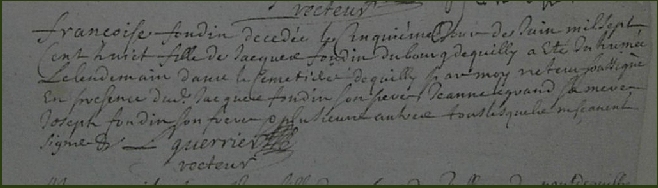 recteur
francoise fondin decedée le Cinquiéme Jour de Juin mil sept
Cent huict fille de Jacque fondin du bourg dequilly a Ete Inhumée
Le lendemain dans le Cemetiére dequilly par moy recteur soussigné
En presence dud. Jacque fondin son pere Jeanne legrand sa mere
Joseph fondin son frere et plusieurs autres tous lesquels ne scavent
signer &
guerrier
recteur